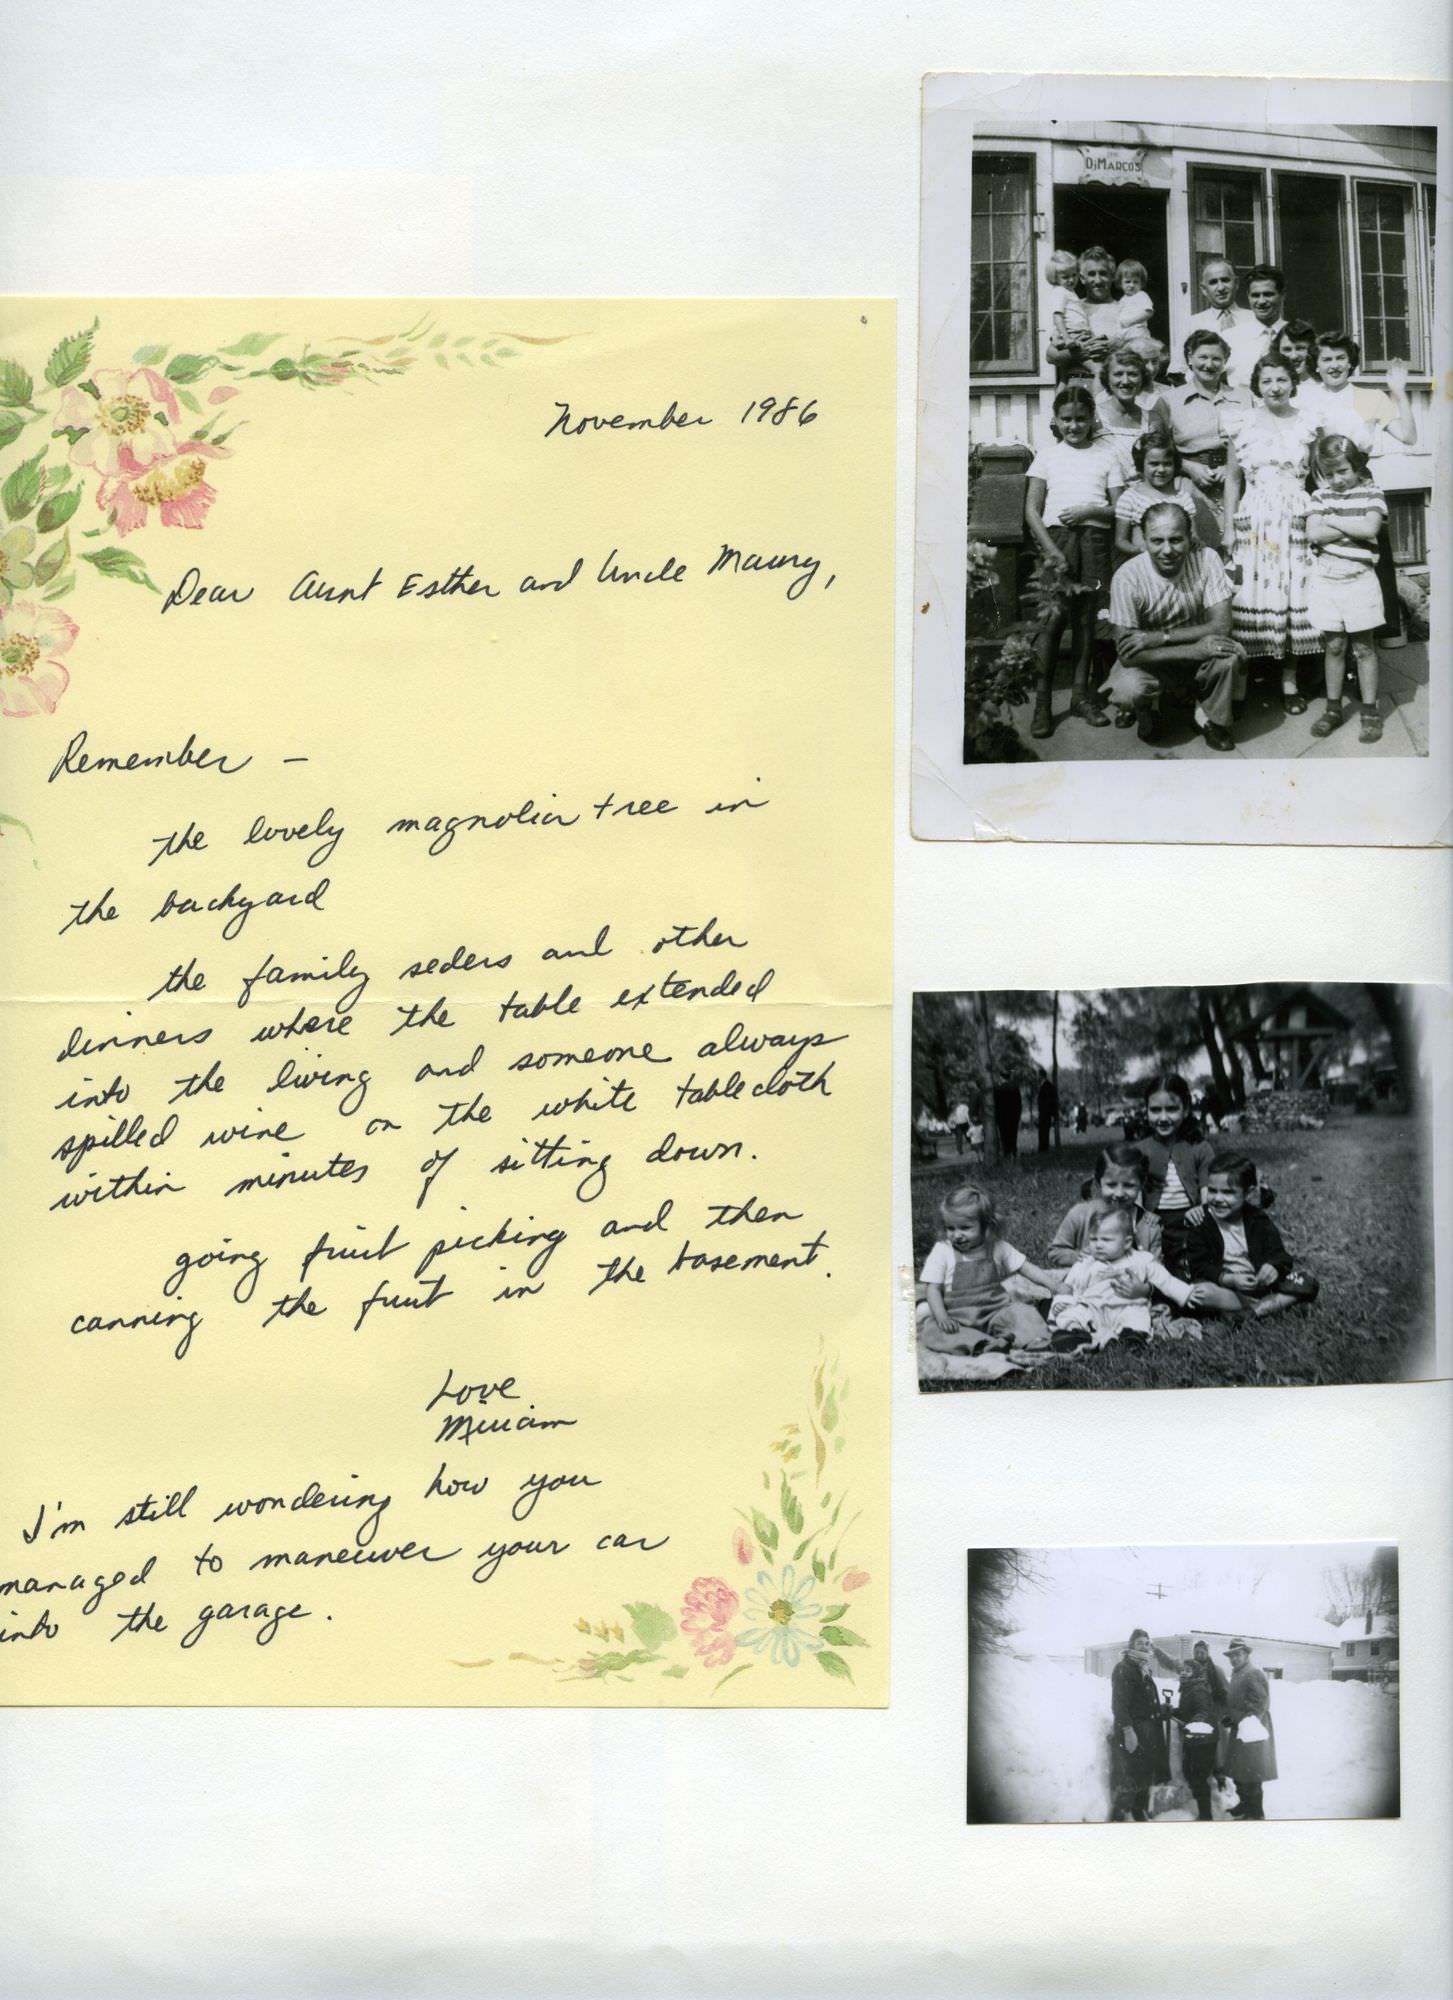 November 1986
Dear Aunt Esther and Uncle Maury,
Remember –
the lovely magnolia tree in
the backyard
the family seders and other
dinners where the table extended
into the living and someone always
spilled wine on the white tablecloth
within minutes of sitting down.
going fruit picking and then
canning the fruit in the basement.
Love
Miriam
I'm still wondering how you
managed to maneuver your car
into the garage.
THE
DiMARCO'S